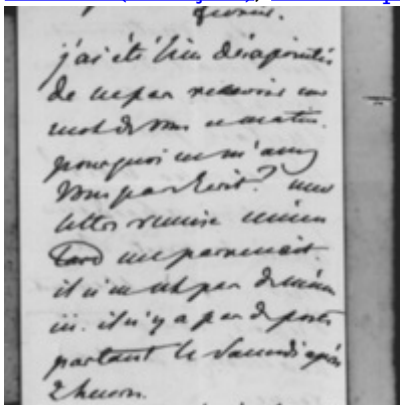 février.
j'ai été bien désapointée
de ne pas recevoir un
mot de vous ce matin.
pourquoi ne m'avez
vous pas écrit? une
lettre remise même
tard me parvenait.
il n'en est pas de même
ici. il n'y a pas de poste
partant le Samedi après
2 heures.